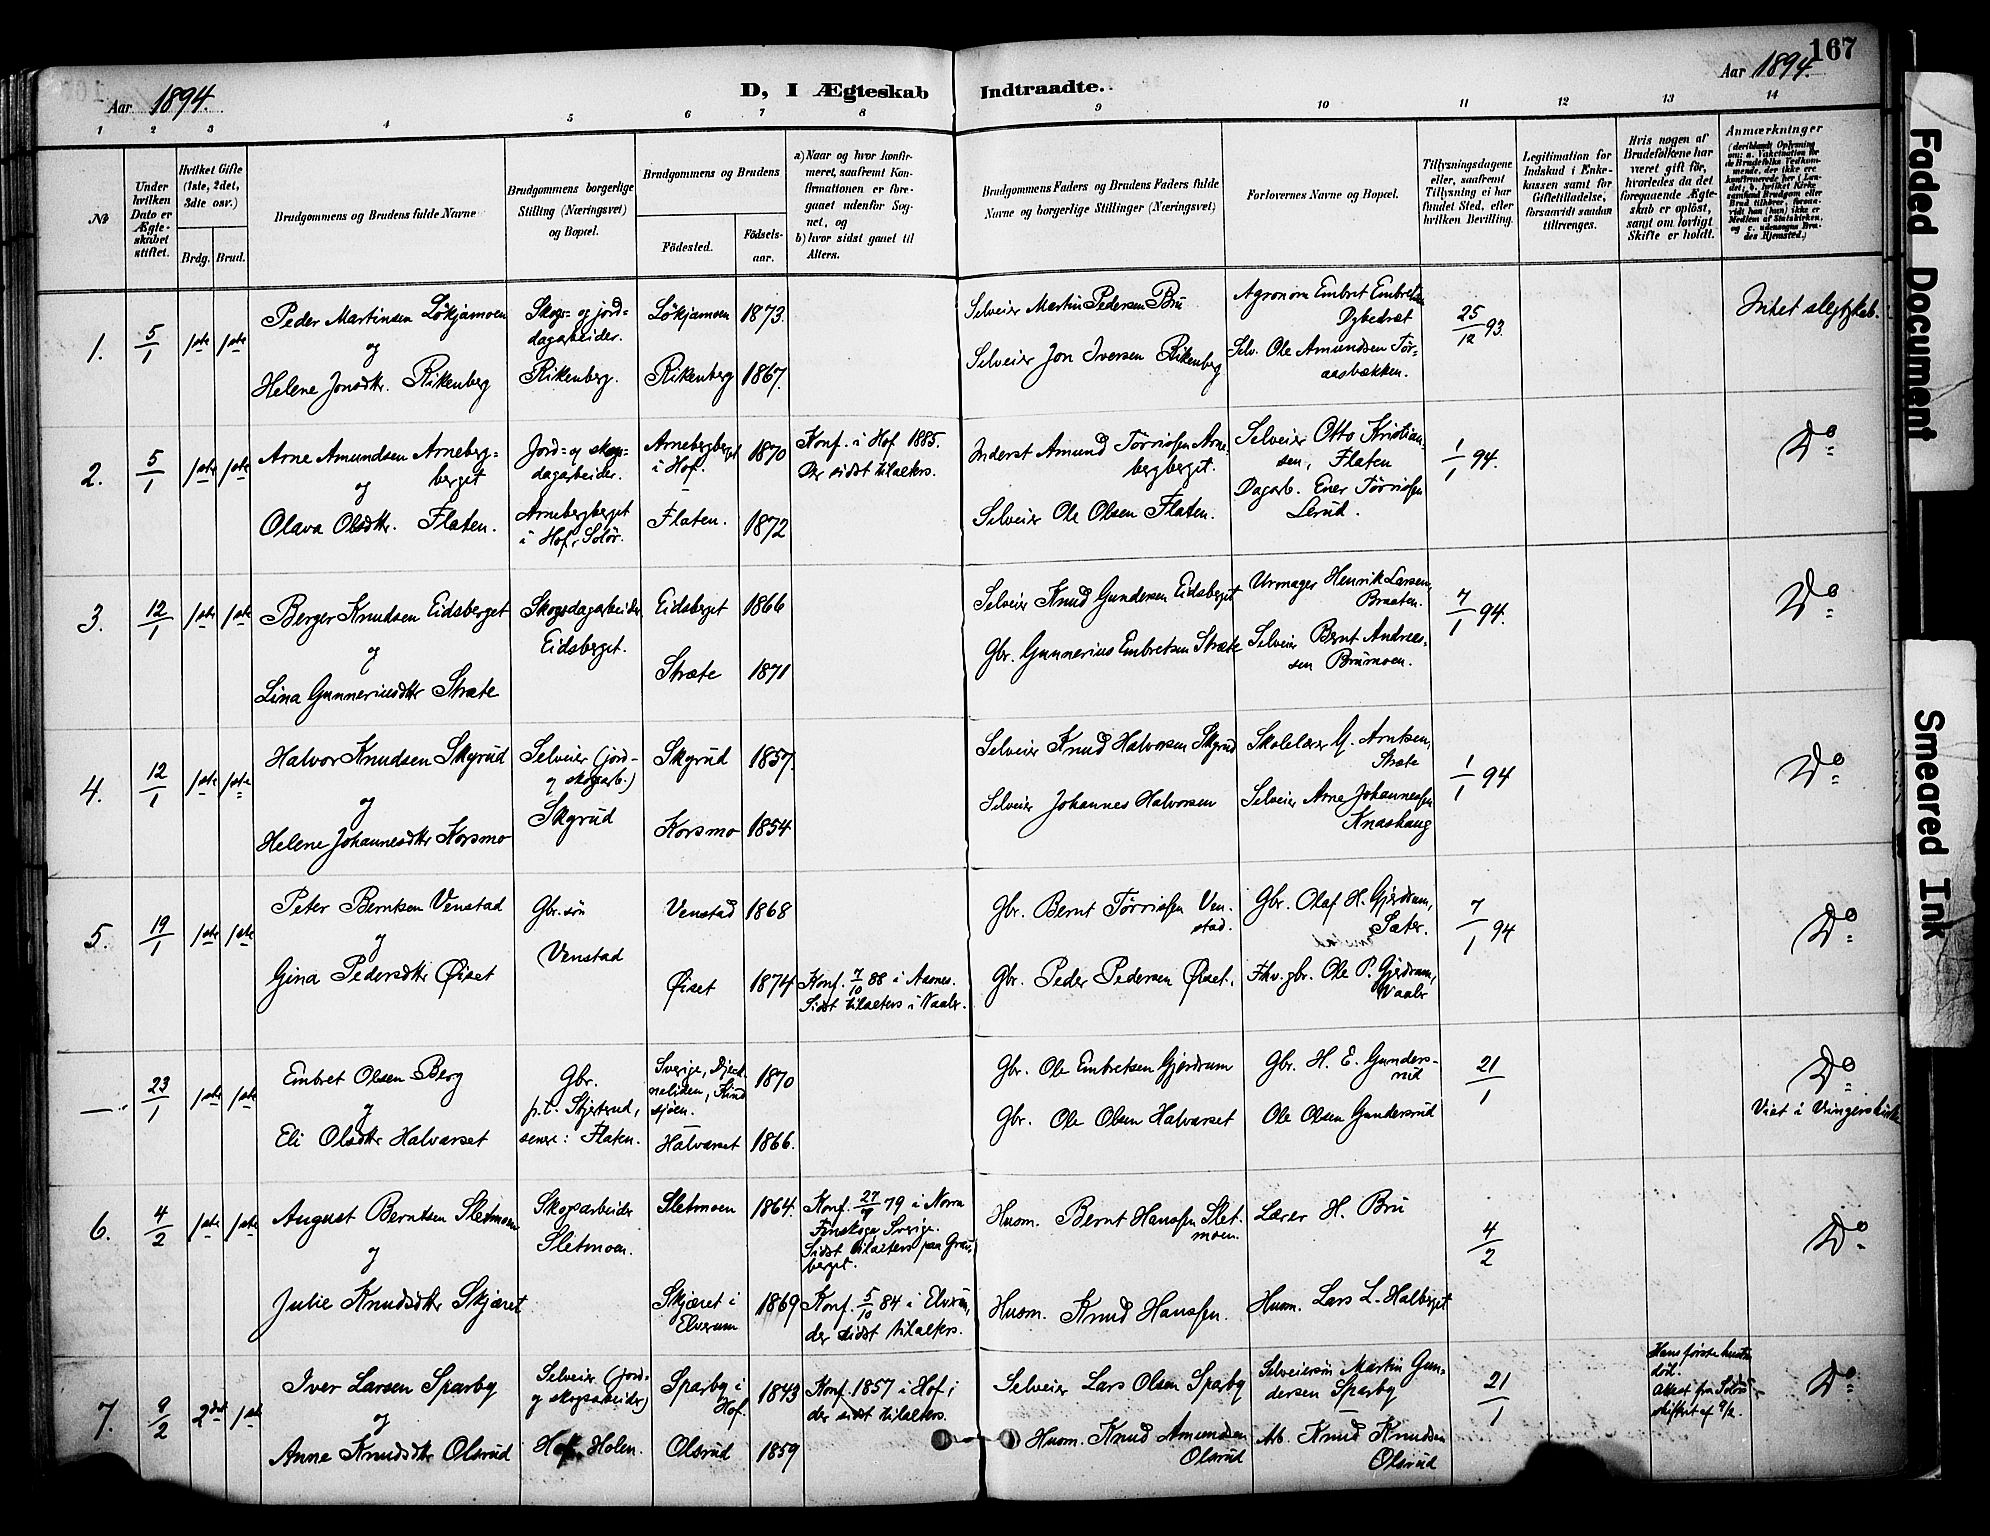 167
Aar 1894.
D, I Ægteskab Indtraadte.
Aar 1894.
1 2 3 4 5 6 7 8 9 10 11 12 13 14
No
Under hvilken Dato er Ægteskabet stiftet.
Hvilket Gifte (1ste, 2det, 3die osv.)
Brdg. Brud.
Brudgommens og Brudens fulde Navne
Brudgommens borgerlige Stilling (Næringsvei) og Bopæl.
Brudgommens og Brudens
Födested.
Födselsaar.
a) Naar og hvor konfirmeret, saafremt Konfirmationen er foregaaet udenfor Sognet, og
b) hvor sidst gaaet til Alters.
Brudgommens Faders og Brudens Faders fulde Navne og borgerlige Stillinger (Næringsvei)
Forlovernes Navne og Bopæl.
Tillysningsdagene eller, saafremt Tillysning ei har fundet Sted, efter hvilken Bevilling.
Legitimation for Indskud i Enkekassen samt for Giftetilladelse, forsaavidt saadan tiltrænges.
Hvis nogen af Brudefolkene har været gift før, hvorledes da det foregaaende Ægteskab er opløst, samt om lovligt Skifte er holdt.
Anmærkninger
(deriblandt Oplysning om: a. Vakcination for de Brudefolks Vedkommende, der ikke ere konfirmerede her i Landet, b. hvilket Kirkesamfund Brudgom eller Brud tilhører, forsaavidt han (hun) ikke er Medlem af Statskirken, og c. udensogns Brudes Hjemsted.)
1. 5/1 1ste 1ste
Peder Martinsen Lökjamoen
og
Helene Jonsdtr. Rikenberg
Skogs= og jord=
dagarbeider.
Rikenberg.
Lökjamoen 1873.
Rikenberg 1867.
Selveier Martin Pedersen Bru
Selveier Jon Iversen Rikenberg
Agronom Embret Embretsen
Dybedræt
Selv. Ole Amundsen Tör-
aasbækken.
25/12 93.
Intet slegtskab.
2. 5/1 1ste 1ste
Arne Amundsen Arneberg=
berget
og
Olava Olsdtr. Flaten.
Jord= og skogs=
dagarbeider.
Arnebergberget
i Hof, Solör.
Arnebergberget
i Hof. 1870
Flaten. 1872
Konf. i Hof 1885.
Der sidst tilalters.
Inderst Amund Törrisen Arne-
bergberget.
Selveier Ole Olsen Flaten.
Selveier Otto Kristian-
sen, Flaten
Dagarb. Ener Törrisen
Lerud.
1/1 94.
Do
3. 12/1 1ste 1ste
Berger Knudsen Eidsberget
og
Lina Gunneriusdtr Stræte
Skogsdagarbeider
Eidsberget.
Eidsberget 1866
Stræte 1871
Selveier Knud Gundersen Eidsberget
Gbr. Gunnerius Embretsen Stræte
Urmager Henrik Larsen,
Braaten.
Selveier Bernt Andreas-
sen Brumoen.
7/1 94.
Do
4. 12/1 1ste 1ste
Halvor Knudsen Skyrud
og
Helene Johannesdtr Korsmo
Selveier (jord-
og skogsarb.)
Skyrud
Skyrud 1857.
Korsmo 1854
Selveier Knud Halvorsen Skyrud
Selveier Johannes Halvorsen
Skolelærer G. Arntsen,
Stræte
Selveier Arne Johannessen
Knashaug
1/1 94
Do
5. 19/1 1ste 1ste
Peter Berntsen Venstad
og
Gina Pedersdtr Öiset
Gbr. søn
Venstad
Venstad 1868
Öiset 1874
Konf. 7/10 88 i Aasnes.
Sidst tilalters i Vaaler.
Gbr. Bernt Törrisen Ven-
stad.
Gbr. Peder Pedersen Öiset.
Gbr. Olaf H. Gjerdrum,
Sæter.
Fhv. gbr. Ole P. Gjerdrum,
Vaaler
7/1 94
Do
—. 23/1 1ste 1ste
Embret Olsen Berg
og
Eli Olsdtr Halvarset
Gbr.
p.t. Skjetrud,
senere: Flaten.
Sverige,
1870
Halvarset 1866.
Gbr. Ole Embretsen Gjerdrum
Gbr. Ole Olsen Halvarset
Gbr. H. E. Gunders-
rud
Ole Olsen Gundersrud
21/1
Do
Viet i Vingers kirke
6. 4/2 1ste 1ste
August Berntsen Sletmoen
og
Julie Knudsdtr Skjæret
Skogsarbeider
Sletmoen.
Sletmoen 1864.
Skjæret i
Elverum 1869
Konf. 27/9 79 i Norra
Finskoga, Sverige.
Sidst tilalters paa Grau-
berget.
Konf. 5/10 84 i Elverum,
der sidst tilalters.
Husm. Bernt Hansen Slet-
moen.
Husm. Knud Hansen.
Lærer H. Bru
Husm. Lars L. Halberget
4/2
Do
7. 9/2 2det 1ste
Iver Larsen Sparby
og
Anne Knudsdtr Olsrud
Selveier (jord-
og skogsarbeider)
Hof. Holen.
Sparby i
Hof. 1843
Olsrud 1859
Konf. 1857 i Hof;
der sidst tilalters.
Selveier Lars Olsen Sparby
Husm. Knud Amundsen
Olsrud
Selveiersön Martin Gun-
dersen Sparby
Arb. Knud Knudsen
Olsrud
21/1
Hans første hustru
död.
Attest fra Solörs
skifteret af 9/2.
Do
Faded Document
Smeared Ink